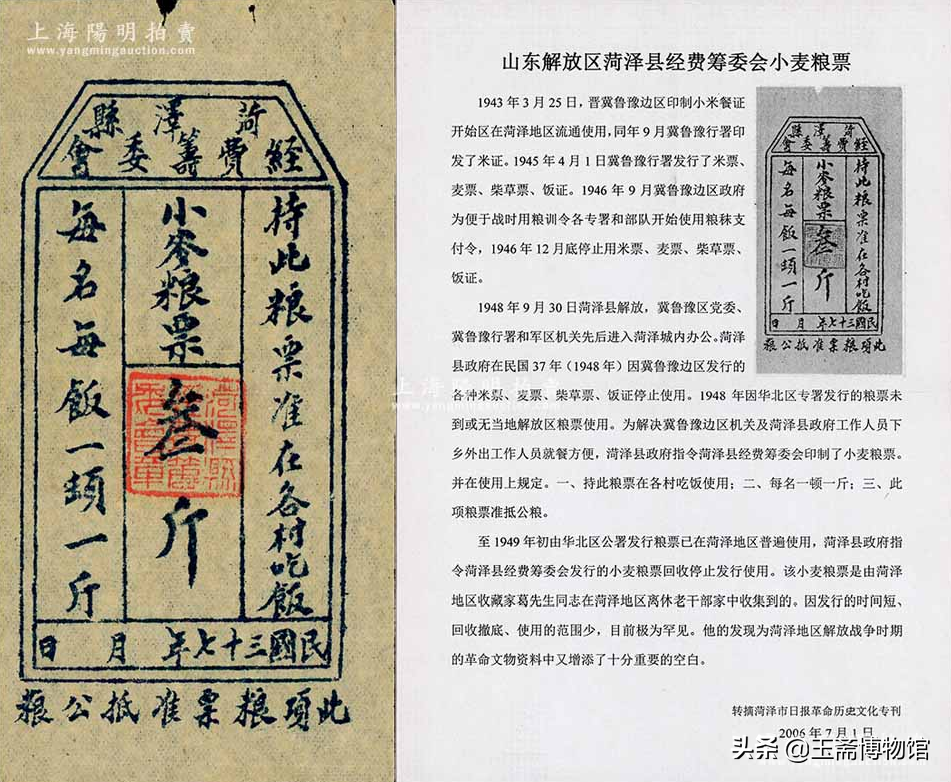 上海陽明拍賣
www.yangmingauction.com
菏澤縣
經費籌委會
持此粮票准在各村吃飯
小麥粮票
叁斤
每名每飯一頓一斤
民國三十七年 月 日
此項粮票准抵公粮
山东解放区菏泽县经费筹委会小麦粮票
1943 年 3 月 25 日，晋冀鲁豫边区印制小米餐证
开始区在菏泽地区流通使用，同年 9 月冀鲁豫行署印
发了米证。1945 年 4 月 1 日冀鲁豫行署发行了米票、
麦票、柴草票、饭证。1946 年 9 月冀鲁豫边区政府
为便于战时用粮训令各专署和部队开始使用粮秣支
付令，1946 年 12 月底停止用米票、麦票、柴草票、
饭证。
1948 年 9 月 30 日菏泽县解放，冀鲁豫区党委、
冀鲁豫行署和军区机关先后进入菏泽城内办公。菏泽
县政府在民国 37 年（1948 年）因冀鲁豫边区发行的
各种米票、麦票、柴草票、饭证停止使用。1948 年因华北区专署发行的粮票未
到或无当地解放区粮票使用。为解决冀鲁豫边区机关及菏泽县政府工作人员下
乡外出工作人员就餐方便，菏泽县政府指令菏泽县经费筹委会印制了小麦粮票。
并在使用上规定。一、持此粮票在各村吃饭使用；二、每名一顿一斤；三、此
项粮票准抵公粮。
至 1949 年初由华北区公署发行粮票已在菏泽地区普遍使用，菏泽县政府指
令菏泽县经费筹委会发行的小麦粮票回收停止发行使用。该小麦粮票是由菏泽
地区收藏家葛先生同志在菏泽地区离休老干部家中收集到的。因发行的时间短、
回收撤底、使用的范围少，目前极为罕见。他的发现为菏泽地区解放战争时期
的革命文物资料中又增添了十分重要的空白。
菏澤縣
經費籌委會
持此粮票准在各村吃飯
小麥粮票
叁斤
每名每飯一頓一斤
民國三十七年 月 日
此項粮票准抵公粮
上海陽明拍賣
www.yangmingauction.com
转摘菏泽市日报革命历史文化专刊
2006 年 7 月 1 日
头条 @玉斋博物馆